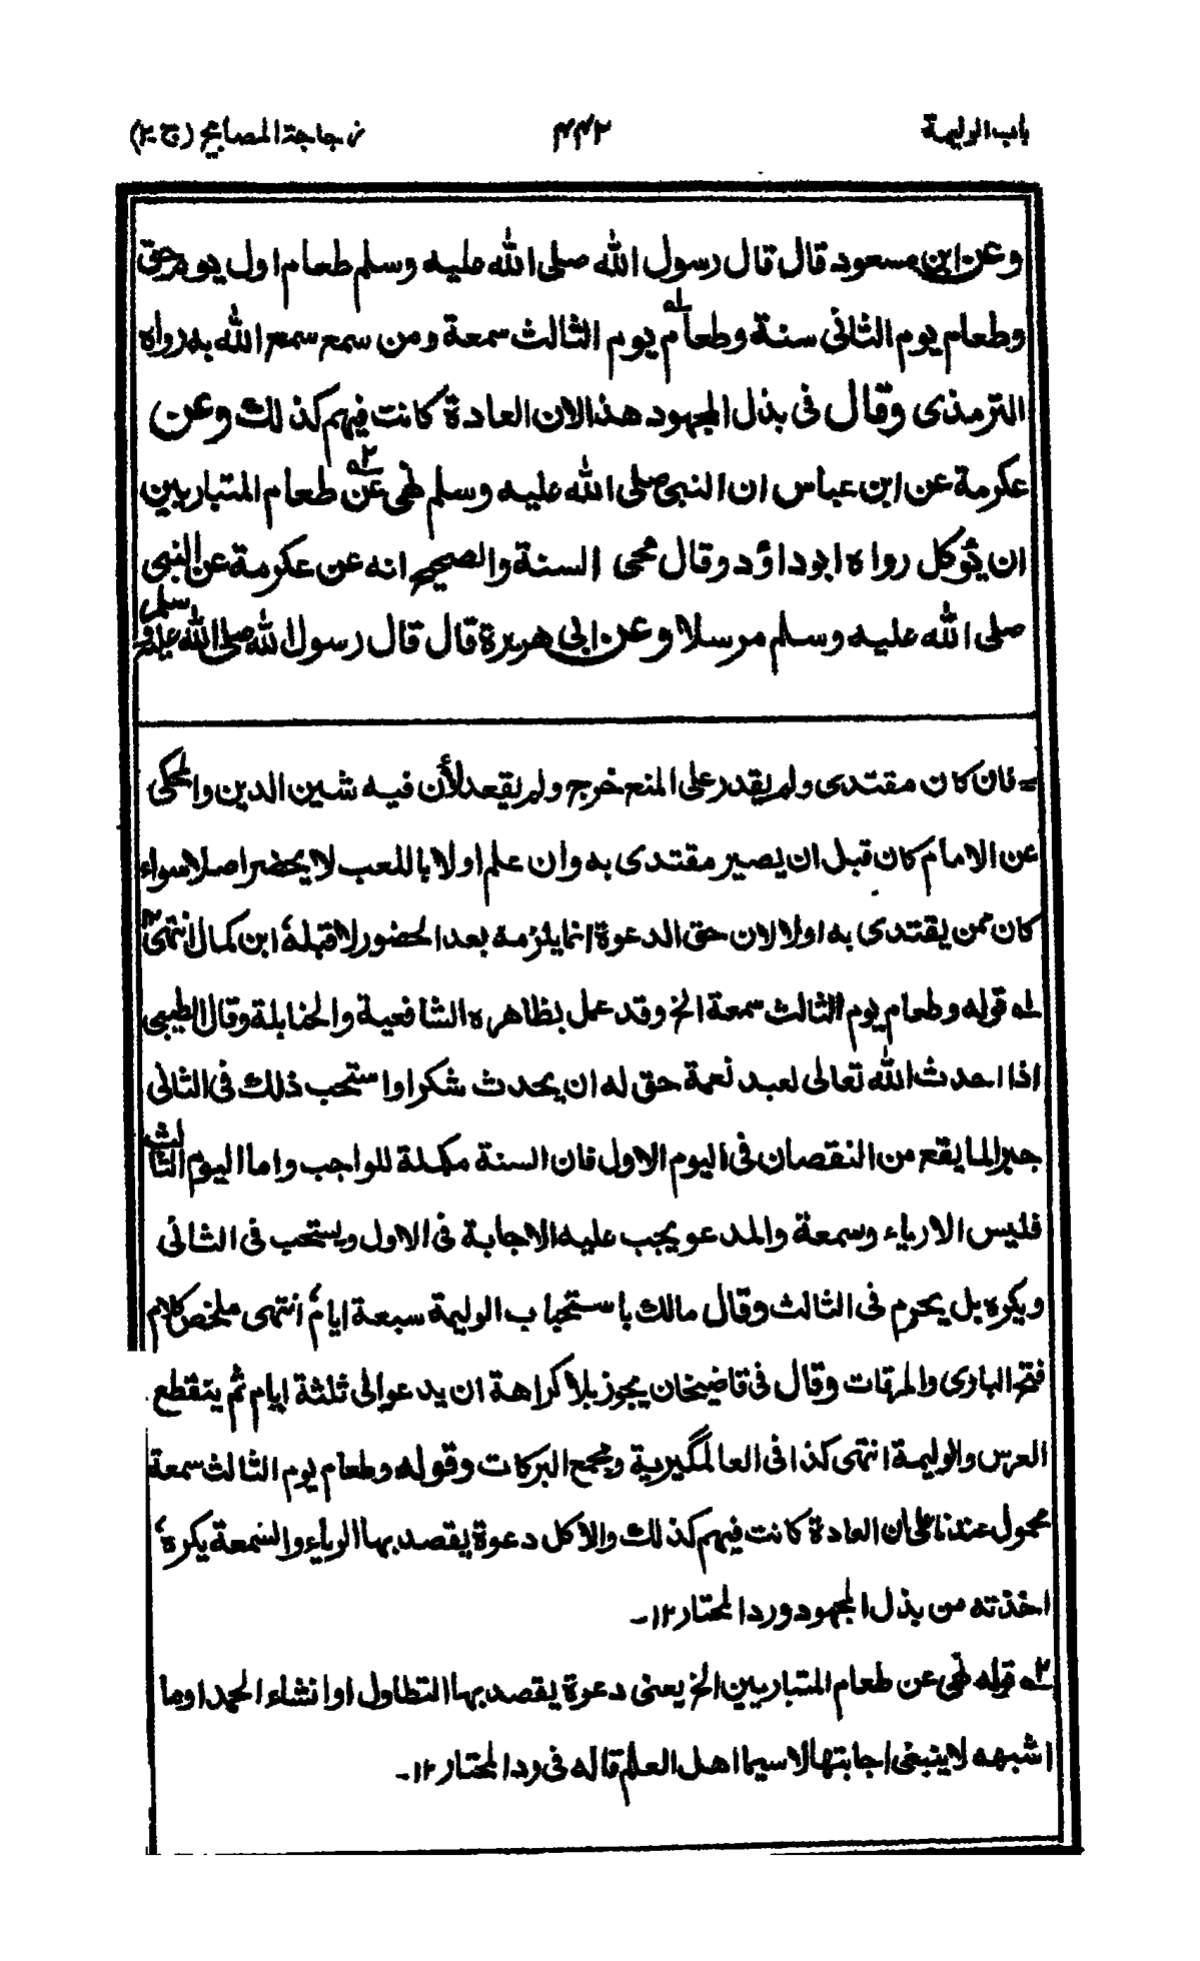 باب الوليمة
٤٤٢
زجاجة المصابيح (ج-٢)
وعن ابن مسعود قال قال رسول الله صلى الله عليه وسلم طعام اول يوم حق
وطعام يوم الثانى سنة وطعام يوم الثالث سمعة ومن سمع سمع الله به رواه
الترمذى وقال فى بذل المجهود هذا لان العادة كانت فيهم كذلك وعن
عكرمة عن ابن عباس ان النبى صلى الله عليه وسلم نهى عن طعام المتباريين
ان يؤكل رواه ابو داؤد وقال محى السنة والصحيح انه عن عكرمة عن النبى
صلى الله عليه وسلم مرسلا وعن ابى هريرة قال قال رسول الله صلى الله عليه وسلم
= فان كان مقتدى ولم يقدر على المنع خرج ولم يقعد لأن فيه شين الدين والمحكى
عن الامام كان قبل ان يصير مقتدى به وان علم اولا باللعب لا يحضر اصلا سواء
كان ممن يقتدى به اولا لان حق الدعوة انما يلزمه بعد الحضور لا قبله ابن كمال انتهى ١٢
١ه قوله وطعام يوم الثالث سمعة الخ وقد عمل بظاهره الشافعية والحنابلة وقال الطيبى
اذا احدث الله تعالى لعبد نعمة حق له ان يحدث شكرا واستحب ذلك فى الثانى
جبرا لما يقع من النقصان فى اليوم الاول فان السنة مكملة للواجب واما اليوم الثالث
فليس الا رياء وسمعة والمدعو يجب عليه الاجابة فى الاول ويستحب فى الثانى
ويكره بل يحرم فى الثالث وقال مالك باستحباب الوليمة سبعة ايام انتهى ملخص كلام
فتح البارى والمرقات وقال فى قاضيخان يجوز بلا كراهة ان يدعو الى ثلثة ايام ثم ينقطع
العرس والوليمة انتهى كذا فى العالمگيرية ومجمع البركات وقوله وطعام يوم الثالث سمعة
محمول عندنا على ان العادة كانت فيهم كذلك والا كل دعوة يقصد بها الرياء والسمعة يكره
اخذته من بذل المجهود ورد المحتار ١٢-
٢ه قوله نهى عن طعام المتباريين الخ يعنى دعوة يقصد بها التطاول او انشاء الحمد او ما
اشبهه لا ينبغى اجابتها لا سيما اهل العلم قاله فى رد المحتار ١٢-